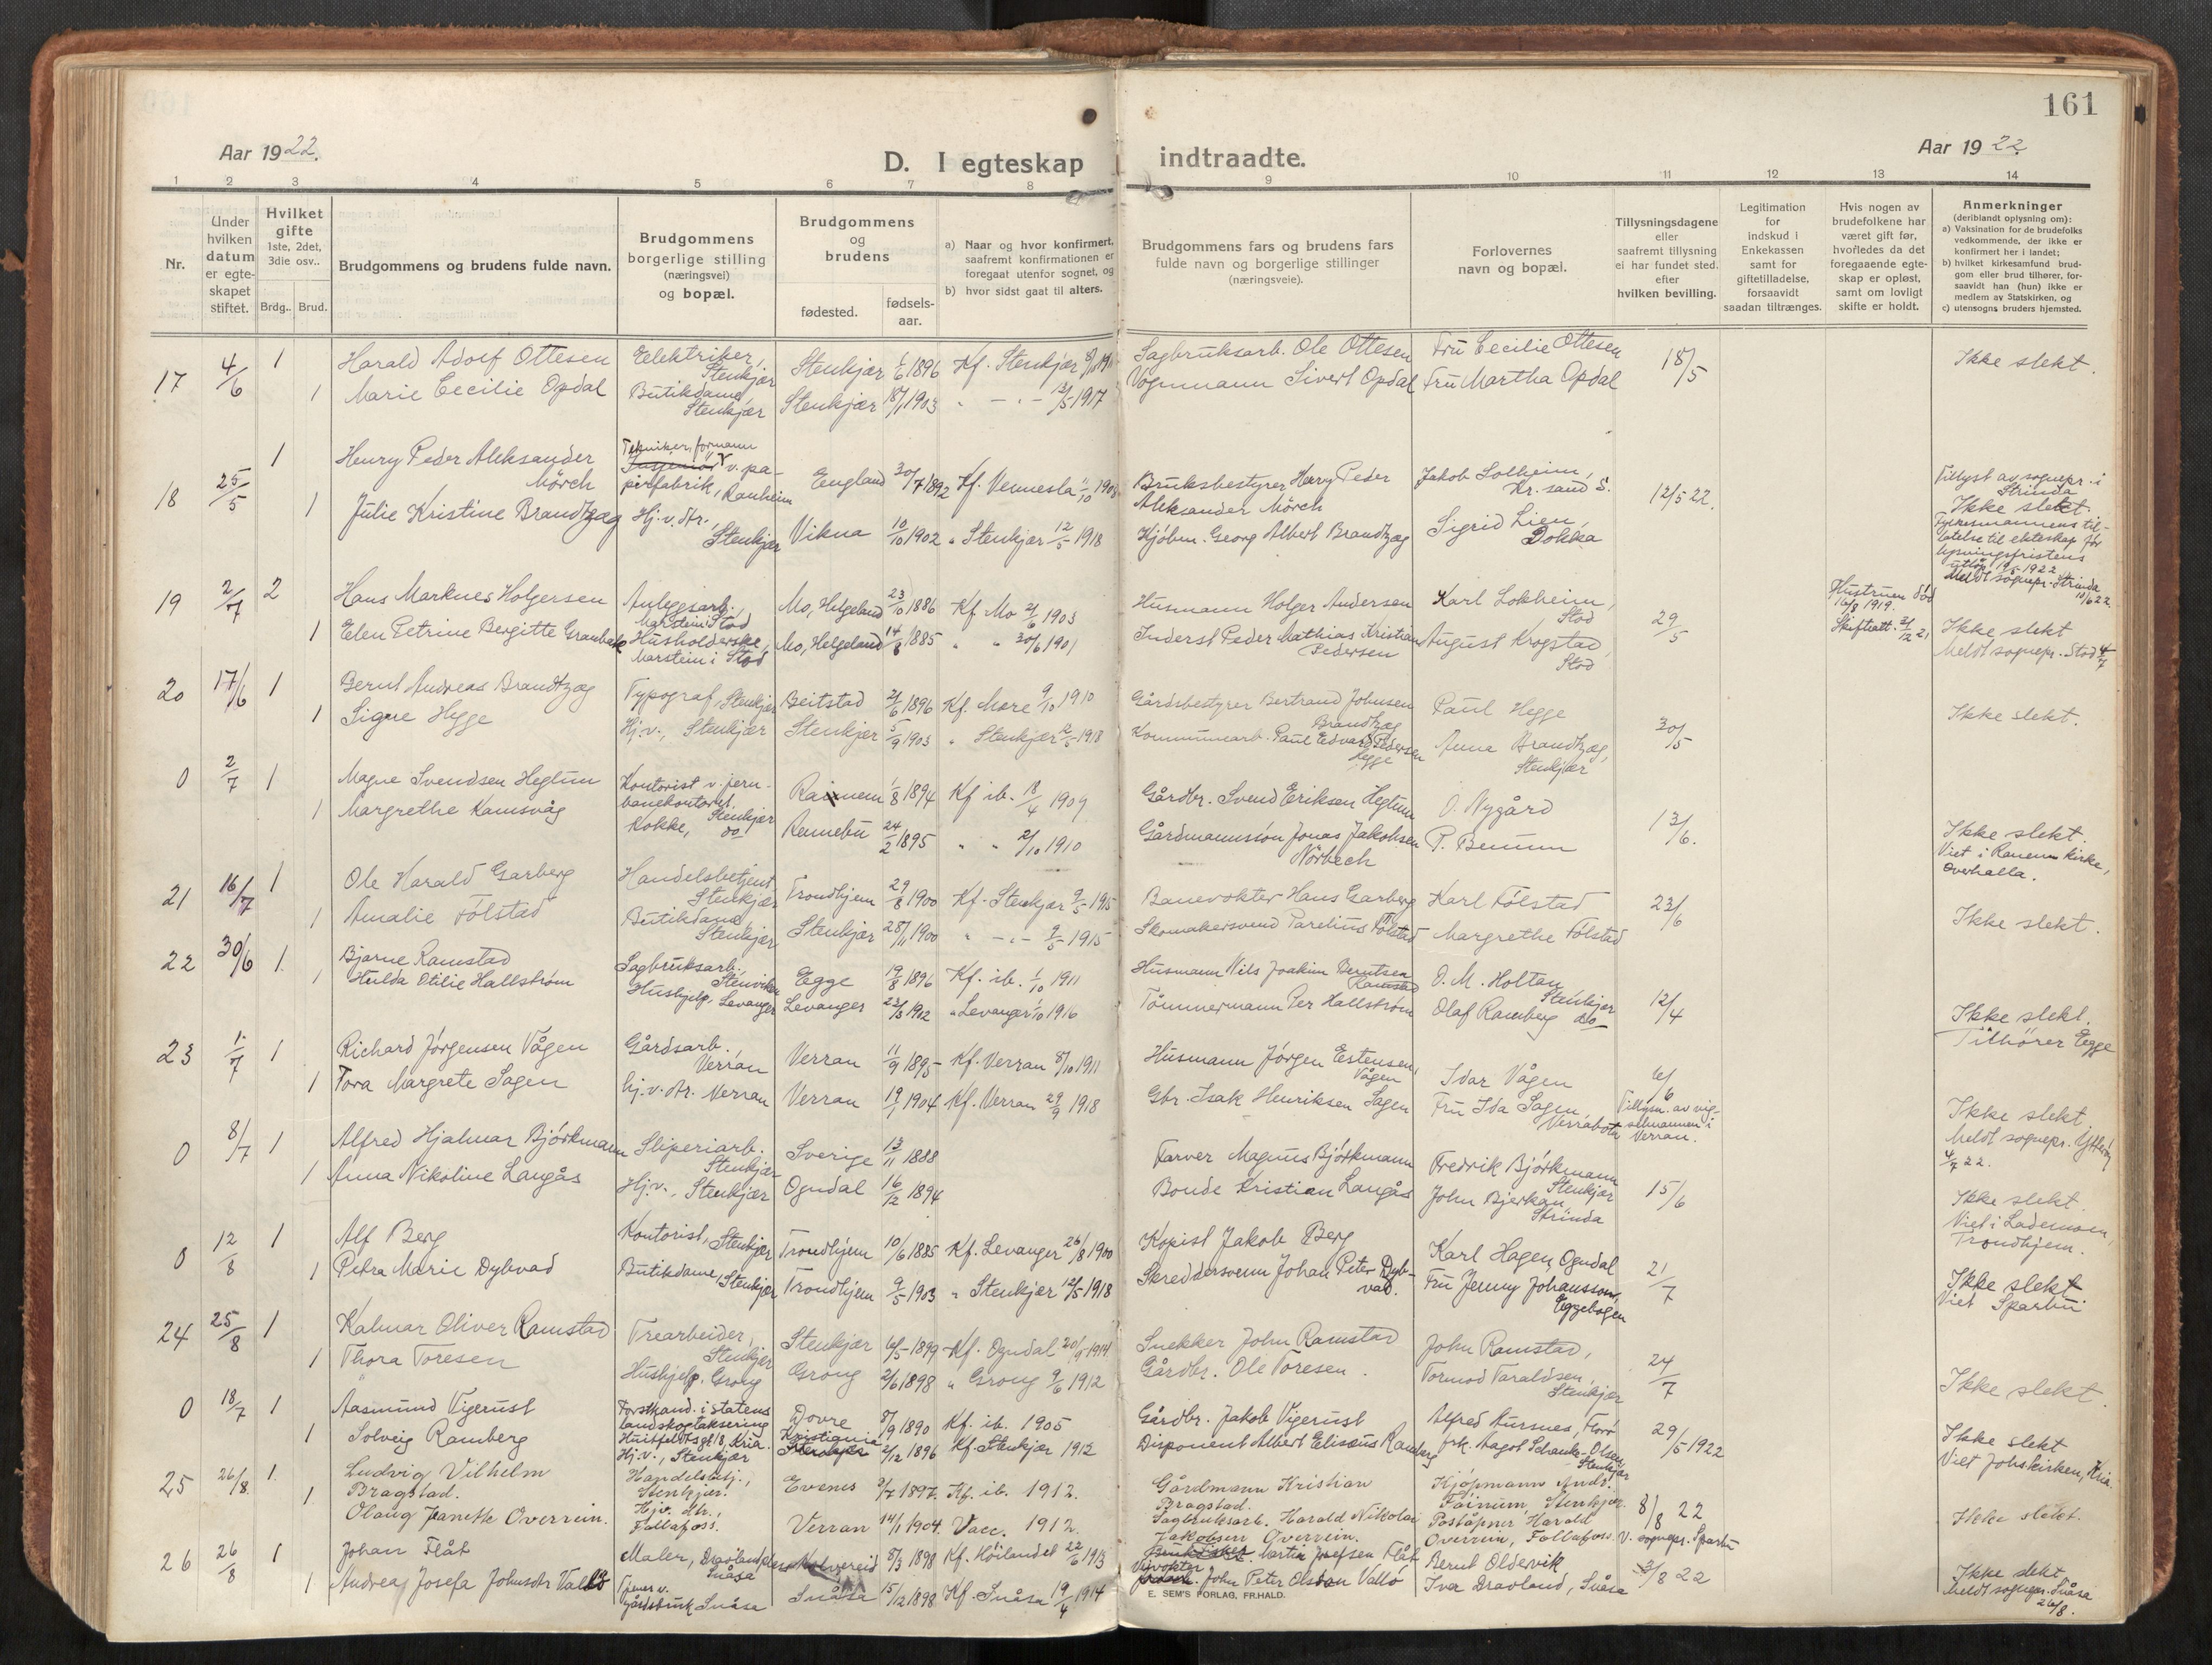 161
Aar 1922.
D. I egteskap indtraadte.
Aar 1922.
1 2 3 4 5 6 7 8 9 10 11 12 13 14
Nr.
Under
hvilken
datum
er egte-
skapet
stiftet.
Hvilket
gifte
1ste, 2det,
3die osv..
Brdg.. Brud.
Brudgommens og brudens fulde navn.
Brudgommens
borgerlige stilling
(næringsvei)
og bopæl.
Brudgommens
og
brudens
fødested.
fødsels-
aar.
a) Naar og hvor konfirmert,
saafremt konfirmationen er
foregaat utenfor sognet, og
b) hvor sidst gaat til alters.
Brudgommens fars og brudens fars
fulde navn og borgerlige stillinger
(næringsveie).
Forlovernes
navn og bopæl.
Tillysningsdagene
eller
saafremt tillysning
ei har fundet sted.
efter
hvilken bevilling.
Legitimation
for
indskud i
Enkekassen
samt for
giftetilladelse,
forsaavidt
saadan tiltrænges.
Hvis nogen av
brudefolkene har
været gift før,
hvofledes da det
foregaaende egte-
skap er opløst,
samt om lovligt
skifte er holdt.
Anmerkninger
(deriblandt oplysning om):
a) Vaksination for de brudefolks
vedkommende, der ikke er
konfirmert her i landet;
b) hvilket kirkesamfund brud-
gom eller brud tilhører, for-
saavidt han (hun) ikke er
medlem av Statskirken, og
c) utensogns bruders hjemsted.
17 4/6 1 Harald Adolf Ottesen Eelektriker, Stenkjær Stenkjær 1896 Kf. Stenkjær Sagbruksarb. Ole Ottesen Fru Cecilie Ottesen 18/5 Ikke slekt.
1 Marie Cecilie Opdal Butikdame, Stenkjær Stenkjær 18/1 1903 " - " - 13/5 1917 Vognmann Sivert Opdal Fru Martha Opdal
18 25/5 1 Henry Peder Aleksander Mörch Tekniker, formann v. pa-
pirfabrik, Ranheim England 30/7 1892 Kf. Vennesla 11/10 1908 Bruksbestyrer Henry Peder Aleksander Mörch Jakob Solheim, Kr. sand S. 12/5 22.
1 Julie Kristine Brandtzæg Hj. v. dr., Stenkjær Vikna 10/10 1902 " Stenkjær 12/5 1918 Kjöbm. Georg Albert Brandtzæg Sigrid Lien, Dokka
Tillyst av sognepr. i
Strinda
Ikke slekt.
Fylkesmannens til-
latelse til ekteskap før
lysningsfristens
utløp 19/5 1922
Meldt sognepr. Strinda
10/6 22.
19 2/7 2 Hans Marknes Holgersen Anleggsarb., Marstein i Stod Mo, Helgeland 23/10 1886 Kf Mo 21/6 1903 Husmann Holger Andersen Karl Lokheim, Stod 29/5 Hustruen död 16/8 1919. Skifteatt. 21/12 21
1 Elen Petrine Bergitte Husholderske, Marstein i Stod Mo, Helgeland 14/8 1885 " " 30/6 1901 Inderst Peder Mathias Kristian Pedersen August Krogstad, Stod Ikke slekt
Meldt sognepr. Stod 4/7
20 17/6 1 Bernt Andreas Brandtzæg Typograf, Stenkjær Beitstad 21/6 1896 Kf. Mære 9/10 1910 Gårdsbestyrer Bertrand Johnsen Brandtzæg Paul Hegge 30/5 Ikke slekt.
1 Signe Hegge Hj. v., Stenkjær Stenkjær 5/9 1903 " Stenkjær 12/5 1918 Kommunearb. Paul Edvard Pedersen Hegge Anna Brandtzæg, Stenkjær
0 2/7 1 Magne Svendsen Hegtun Kontorist v. jern-
banekontoret, Stenkjær 1/8 1894 Kf ib. 18/4 1909 Gårdbr. Svend Eriksen Hegtun O. Nygård 13/6.
1 Margrethe Ramsvåg Kokke, do Rennebu 24/2 1895 " " 2/10 1910 Gårdmannssön Jonas Jakobsen Nörbech P. Ikke slekt.
Viet i Ranem kirke,
Overhalla.
21 16/7 1 Ole Harald Garberg Handelsbetjent, Stenkjær Trondhjem 29/8 1900 Kf. Stenkjær 9/5 1915 Banevokter Hans Garberg Karl Fölstad 23/6
1 Amalie Fölstad Butikdame, Stenkjær Stenkjær 28/11 1900 " - " - 9/5 1915 Skomakersvend Parelius Fölstad Margrethe Fölstad Ikke slekt.
22 30/6 1. Bjarne Ramstad Sagbruksarb. Egge 19/8 1896 Kf. ib. 1/10 1911 Husmann Nils Joakim Berntsen Ramstad O. M. Holtan, Stenkjær 12/4
1 Hulda Otilie Hallström Hushjelp, Levanger Levanger 23/3 1902 " Levanger 1/10 1916 Tömmermann Per Hallström Olaf Ramberg do Ikke slekt.
Tilhörer Egge
23 1/7 1 Richard Jörgensen Vågen Gårdsarb. Verran Verran 11/9 1895 Kf. Verran 8/10 1911 Husmann Jörgen Estensen Vågen Idar Vågen 6/6
1 Tora Margrete Sagen hj. v. dr. Verran Verran 19/1 1904 Kf. Verran 29/9 1918 Gbr. Isak Henriksen Sagen Fru Ida Sagen, Verrabotn Tillysn. av vig-
selmannen i
Verran.
Ikke slekt
Meldt sognepr. Ytteröy
4/7 22.
0 8/7 1 Alfred Hjalmar Björkmann Sliperiarb. Stenkjær Sverige 13/11 1888 Farver Magnus Björkmann Fredrik Björkmann Stenkjær 15/6
1 Anna Nikoline Langås Hj. v., Stenkjær Ogndal 16/12 1894 Bonde Kristian Langås John Bjerkan, Strinda Ikke slekt.
Viet i Lademoen,
Trondhjem.
0 12/8 1 Alf Berg Kontorist, Stenkjær Trondhjem 10/6 1885 Kf. Levanger 26/8 1900 Kopist Jakob Berg Karl Hagen, Ogndal 21/7
1 Petra Marie Dybvad Butikdame, Stenkjær Trondhjem 9/5 1903 " Stenkjær 12/5 1918 Skreddersvenn Johan Peter Dyb-
vad. Fru Jenny Johansson, Eggebogen Ikke slekt
Viet Sparbu
24 25/8 1 Kalmar Oliver Ramstad Trearbeider, Stenkjær Stenkjær 16/5 1899 Kf. Ogndal 20/9 1914 Snekker John Ramstad John Ramstad, 24/7
1 Thora Toresen Hushjelp, Grong Grong 2/6 1898 " Grong 9/6 1912 Gårdbr. Ole Toresen. Tormod Taraldsen, Stenkjær Ikke slekt.
0 18/7 1 Aasmund Vigerust Forstkand. i statens
landskogtaksering
Huitfeldtsgt 18, Kria. Dovre 8/9 1890 Kf. ib. 1905 Gårdbr. Jakob Vigerust Alfred Aursnes, Florö 29/5 1922
1 Solveig Ramberg Hj. v., Stenkjær Kristiania 2/12 1896 Kf. Stenkjær 1912 Disponent Albert Eliseus Ramberg frk. Aagot Schanke-Olsen, Stenkjær Ikke slekt
Viet Johskirken, Kria.
25 26/8. 1. Ludvig Vilhelm
Bragstad. Handelsbetj., Stenkjær. Evenes 3/7 1897. Kf. ib. 1912. Gårdmann Kristian
Bragstad. Kjöpmann Andr.
Föinum, Stenkjær. 8/8 22
1 Olaug Jeanette Overrein. Hjv. dr., Follafoss. Verran 14/1 1904. Vacc. 1912. Sagbruksarb. Harald Nikolai
Jakobsen Overrein. Poståpner Harald
Overrein, Follafoss. V. sognepr. Sparbu Ikke slekt.
26 26/8 1 Johan Flåt Maler, Snåsa Kolvereid 8/3 1898 Kf. Höilandet 22/6 1913 Martin Josefsen Flåt Bernt Oldervik 3/8 22
1 Andrea Josefa Johnsdtr Vallö Tjener v.
gårdsbruk Snåsa Snåsa 15/12 1898 Kf. Snåsa 19/4 1914 John Peter Olsson Vallö Iver Dravland, Snåsa Ikke slekt
Meldt sognepr. Snåsa
26/8.
E. SEM'S FORLAG, FR.HALD.